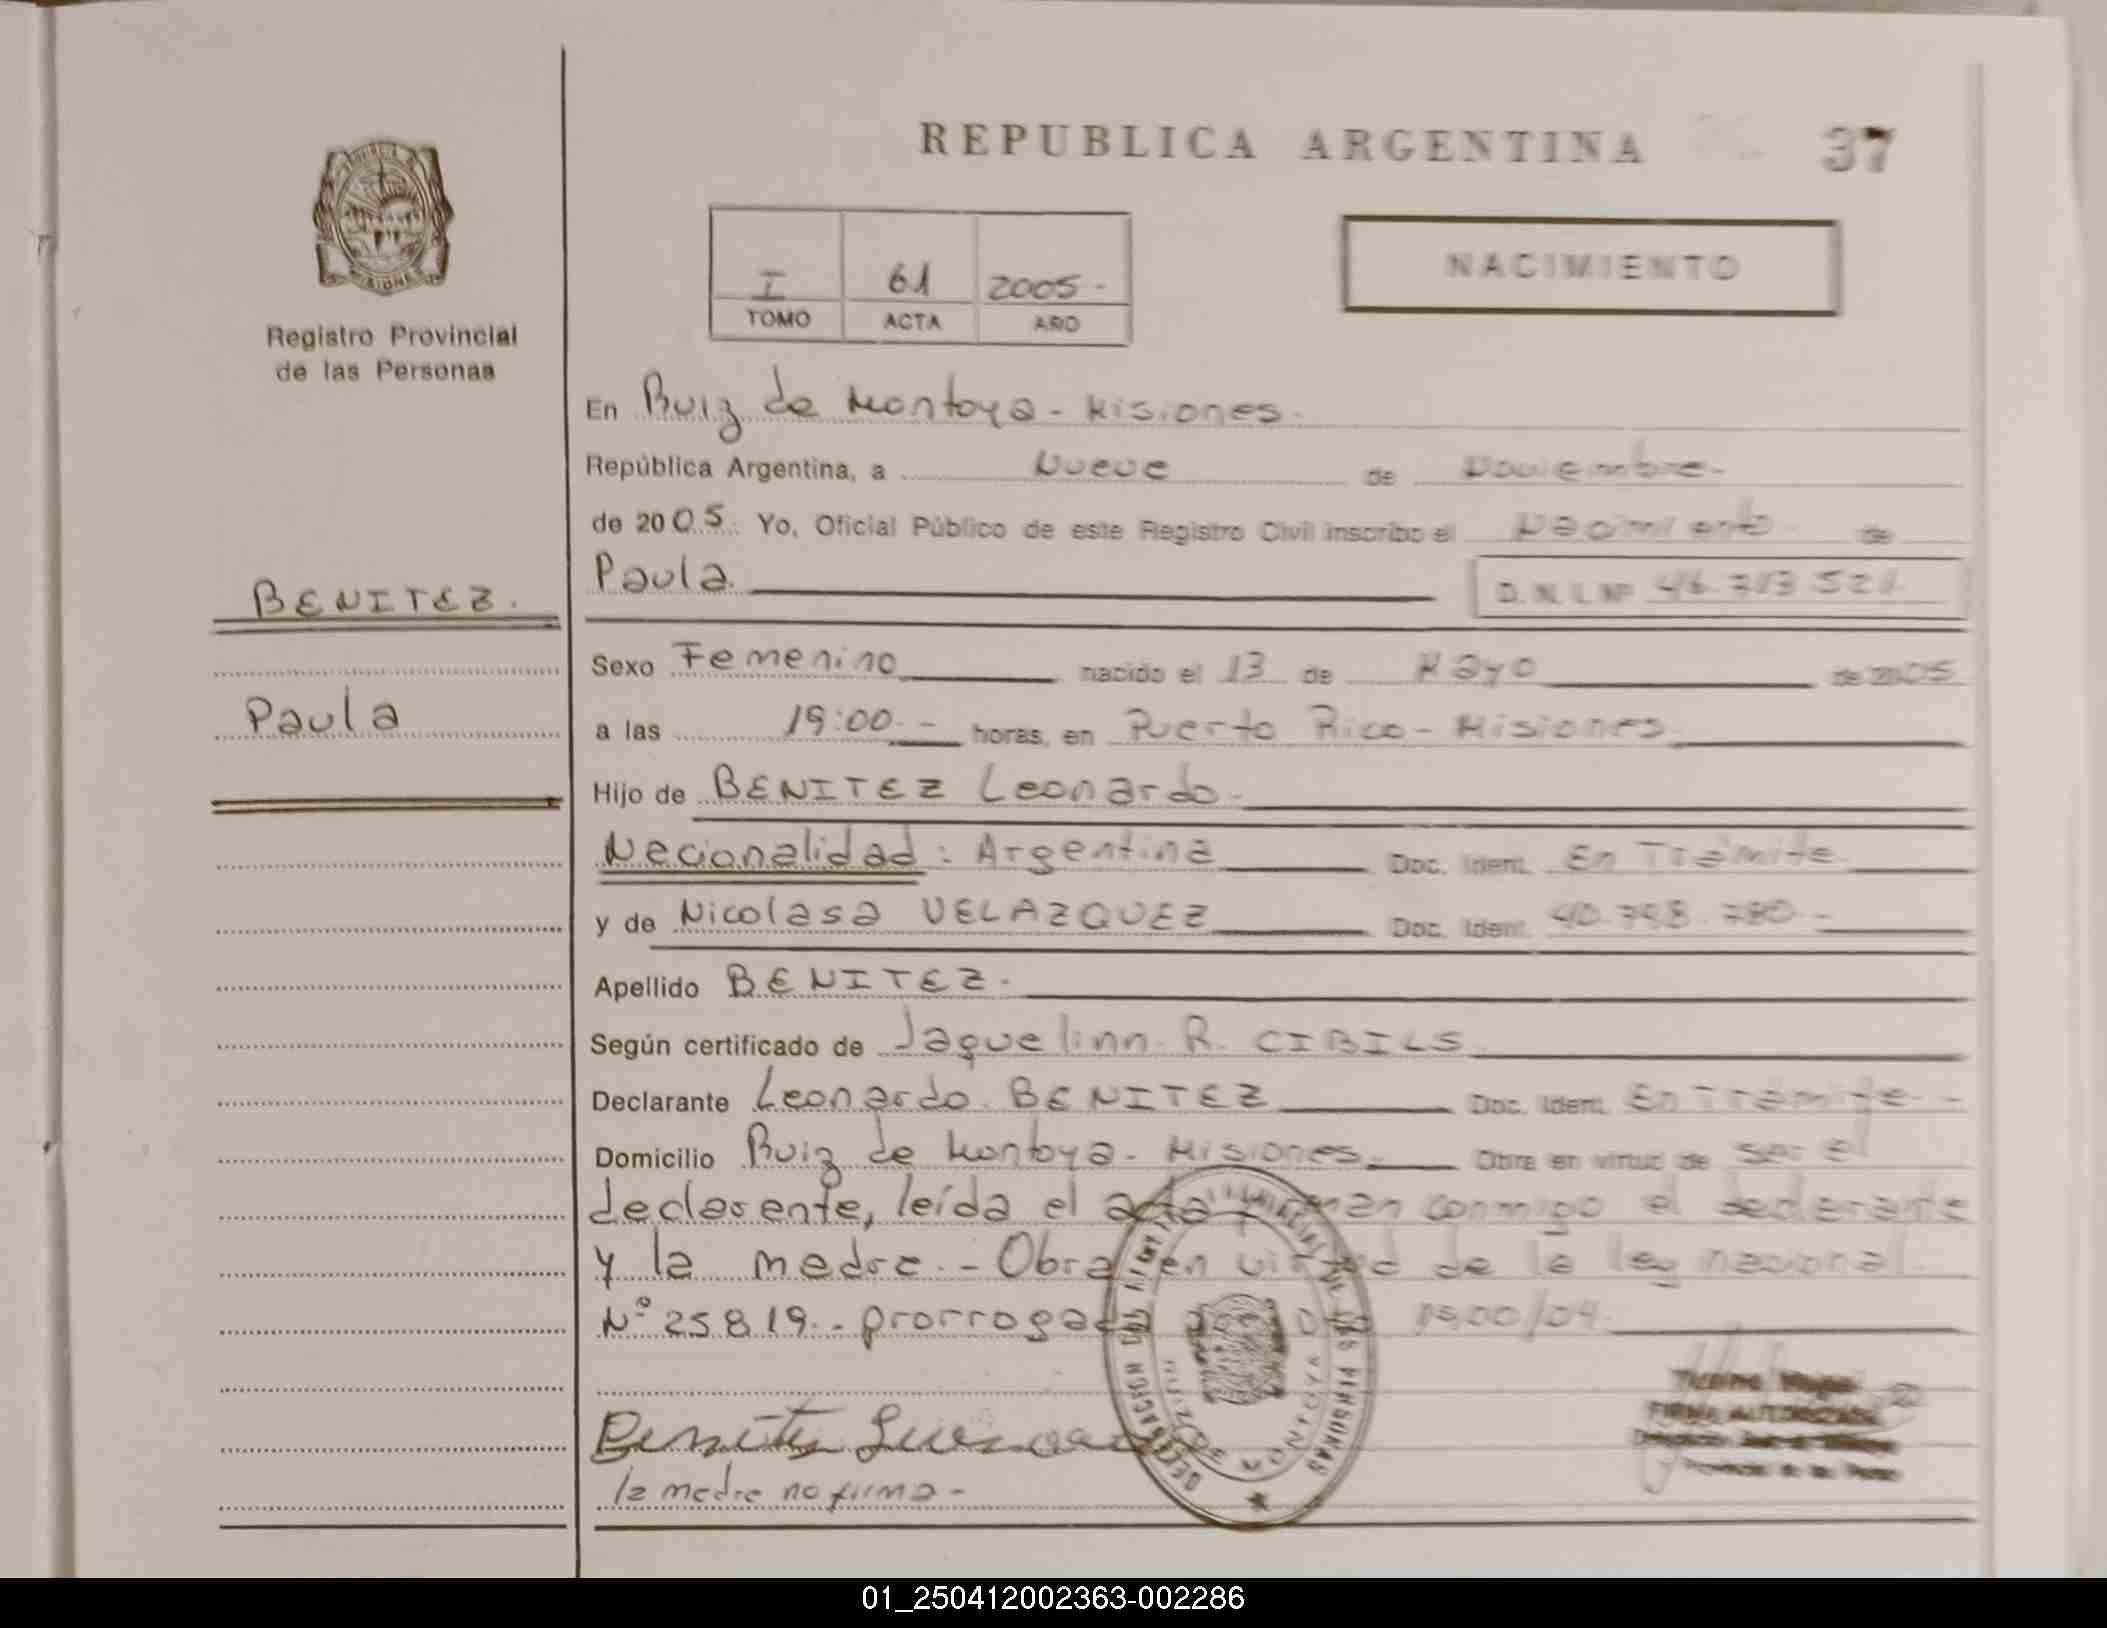 REPUBLICA ARGENTINA
37
PROVINCIA DE MISIONES
Registro Provincial
de las Personas
I 61 2005.-
TOMO ACTA AÑO
NACIMIENTO
En Ruiz de Montoya - Misiones.
República Argentina, a Nueve de Noviembre.-
de 2005. Yo, Oficial Público de este Registro Civil inscribo el Nacimiento de
Paula. D.N.I. Nº
BENITEZ.
Paula
Sexo Femenino nacido el 13 de Mayo de 2005
a las 19:00.- horas, en Puerto Rico - Misiones.
Hijo de BENITEZ Leonardo.
Nacionalidad: Argentina Doc. Ident. En Trámite.
y de Nicolasa VELAZQUEZ Doc. Ident.
Apellido BENITEZ.
Según certificado de Jaquelinn R. CIBILS
Declarante Leonardo BENITEZ Doc. Ident. En Trámite.-
Domicilio Ruiz de Montoya - Misiones. Obra en virtud de ser el
declarante, leída el acta firman conmigo el declarante
y la madre.- Obra en virtud de la ley nacional
Nº 25819.- prorrogada 1500/04.
Benitez
la madre no firma -
DE LAS PERSONAS
RUIZ DE MONTOYA
FIRMA AUTORIZADA
01_250412002363-002286